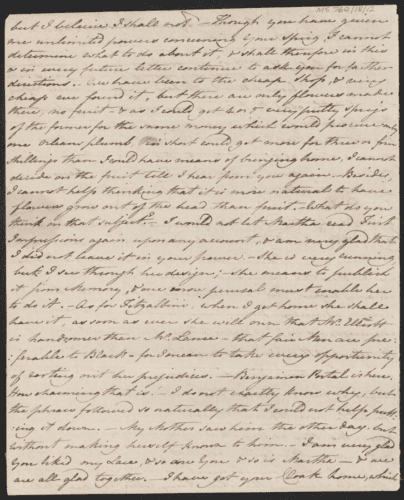 MS 742/18/12
but I beleive I shall not. — Though you have given
me unlimited powers concerning Your Sprig, I cannot
determine what to do about it, & shall therefore in this
& in every future letter continue to ask you for farther
directions. — We have been to the cheap Shop, & very
cheap we found it, but there are only flowers made
there, no fruit & as I could get 4 or 5 very pretty sprigs
of the former for the same money which would procure only
one Orleans plumb, in short could get more for three or four
Shillings than I could have means of bringing home, I cannot
decide on the fruit till I hear from you again. — Besides,
I cannot help thinking that it is more natural to have
flowers grow out of the head than fruit. — What do you
think on that subject? — I would not let Martha read First
Impressions again upon any account, & am very glad that
I did not leave it in your power. — She is very cunning,
but I see through her design; — she means to publish
it from Memory, & one more perusal must enable her
to do it. — As for Fitzalbini, when I get home she shall
have it, as soon as ever she will own that Mr. Elliott
is handsomer than Mr. Lance — that fair Men are pre=
=ferable to Black — for I mean to take every opportunity
of rooting out her prejudices. — Benjamin Portal is here.
How charming that is! — I do not exactly know why, but
the phrase followed so naturally that I could not help putt=
=ing it down. — My Mother saw him the other day, but
without making herself known to him. — I am very glad
You liked my Lace, & so are You & so is Martha — & we
are all glad together. — I have got your Cloak home, which